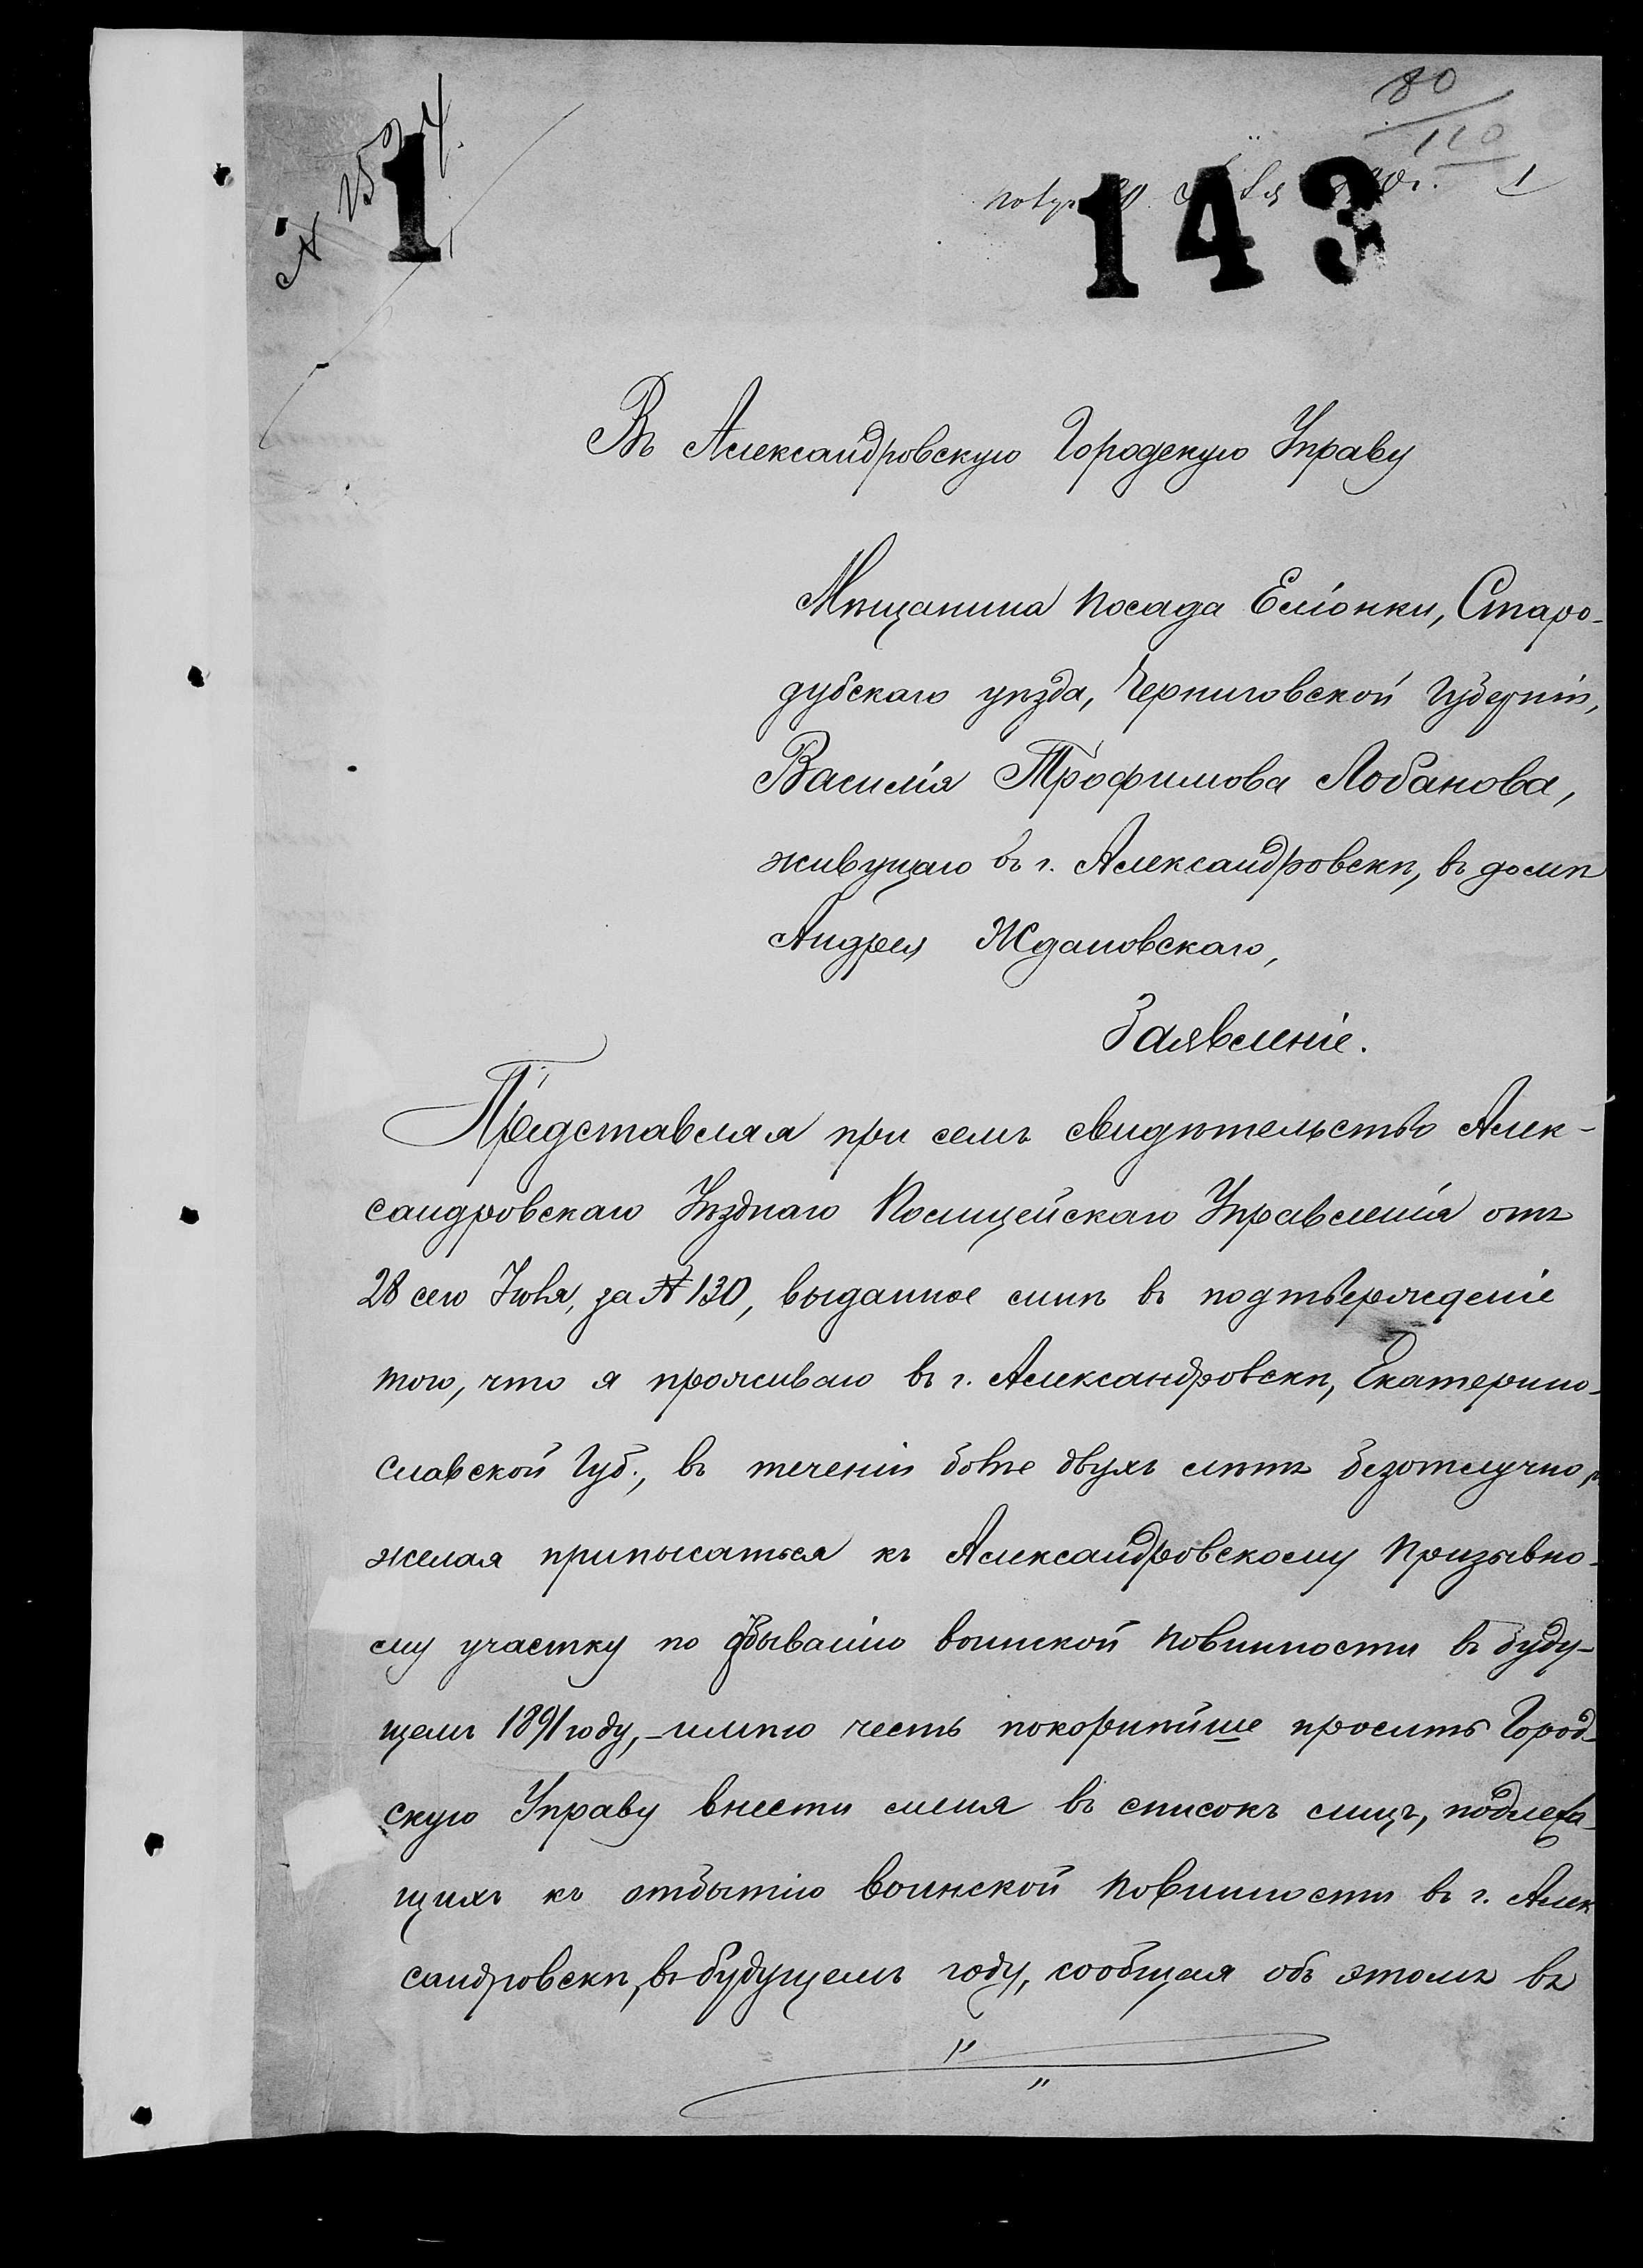 80
110
1
1
143
Въ Александровскую Городскую Управу
Мѣщанина посада Еліонки, Старо-
дубскаго уѣзда, Черниговской Губерніи,
Василія Трофимова Лобанова,
живущаго въ г. Александровскѣ, въ домѣ
Андрея Ждановскаго,
Заявленіе.
Представляя при семъ свидѣтельство Алек-
сандровскаго Уѣзднаго Полицейскаго Управленія отъ
28 сего Іюля, за № 130, выданное мнѣ въ подтвержденіе
того, что я проживаю въ г. Александровскѣ, Екатерино-
славской Губ., въ теченіи болѣе двухъ лѣтъ безотлучно,
желая приписаться къ Александровскому Призывно-
му участку по отбыванію воинской повинности въ буду-
щемъ 1891 году, - имѣю честь покорнѣйше просить Город-
скую Управу внести меня въ списокъ лицъ, подлежа-
щихъ къ отбытію воинской повинности въ г. Алек
сандровскѣ, въ будущемъ году, сообщая объ этомъ въ